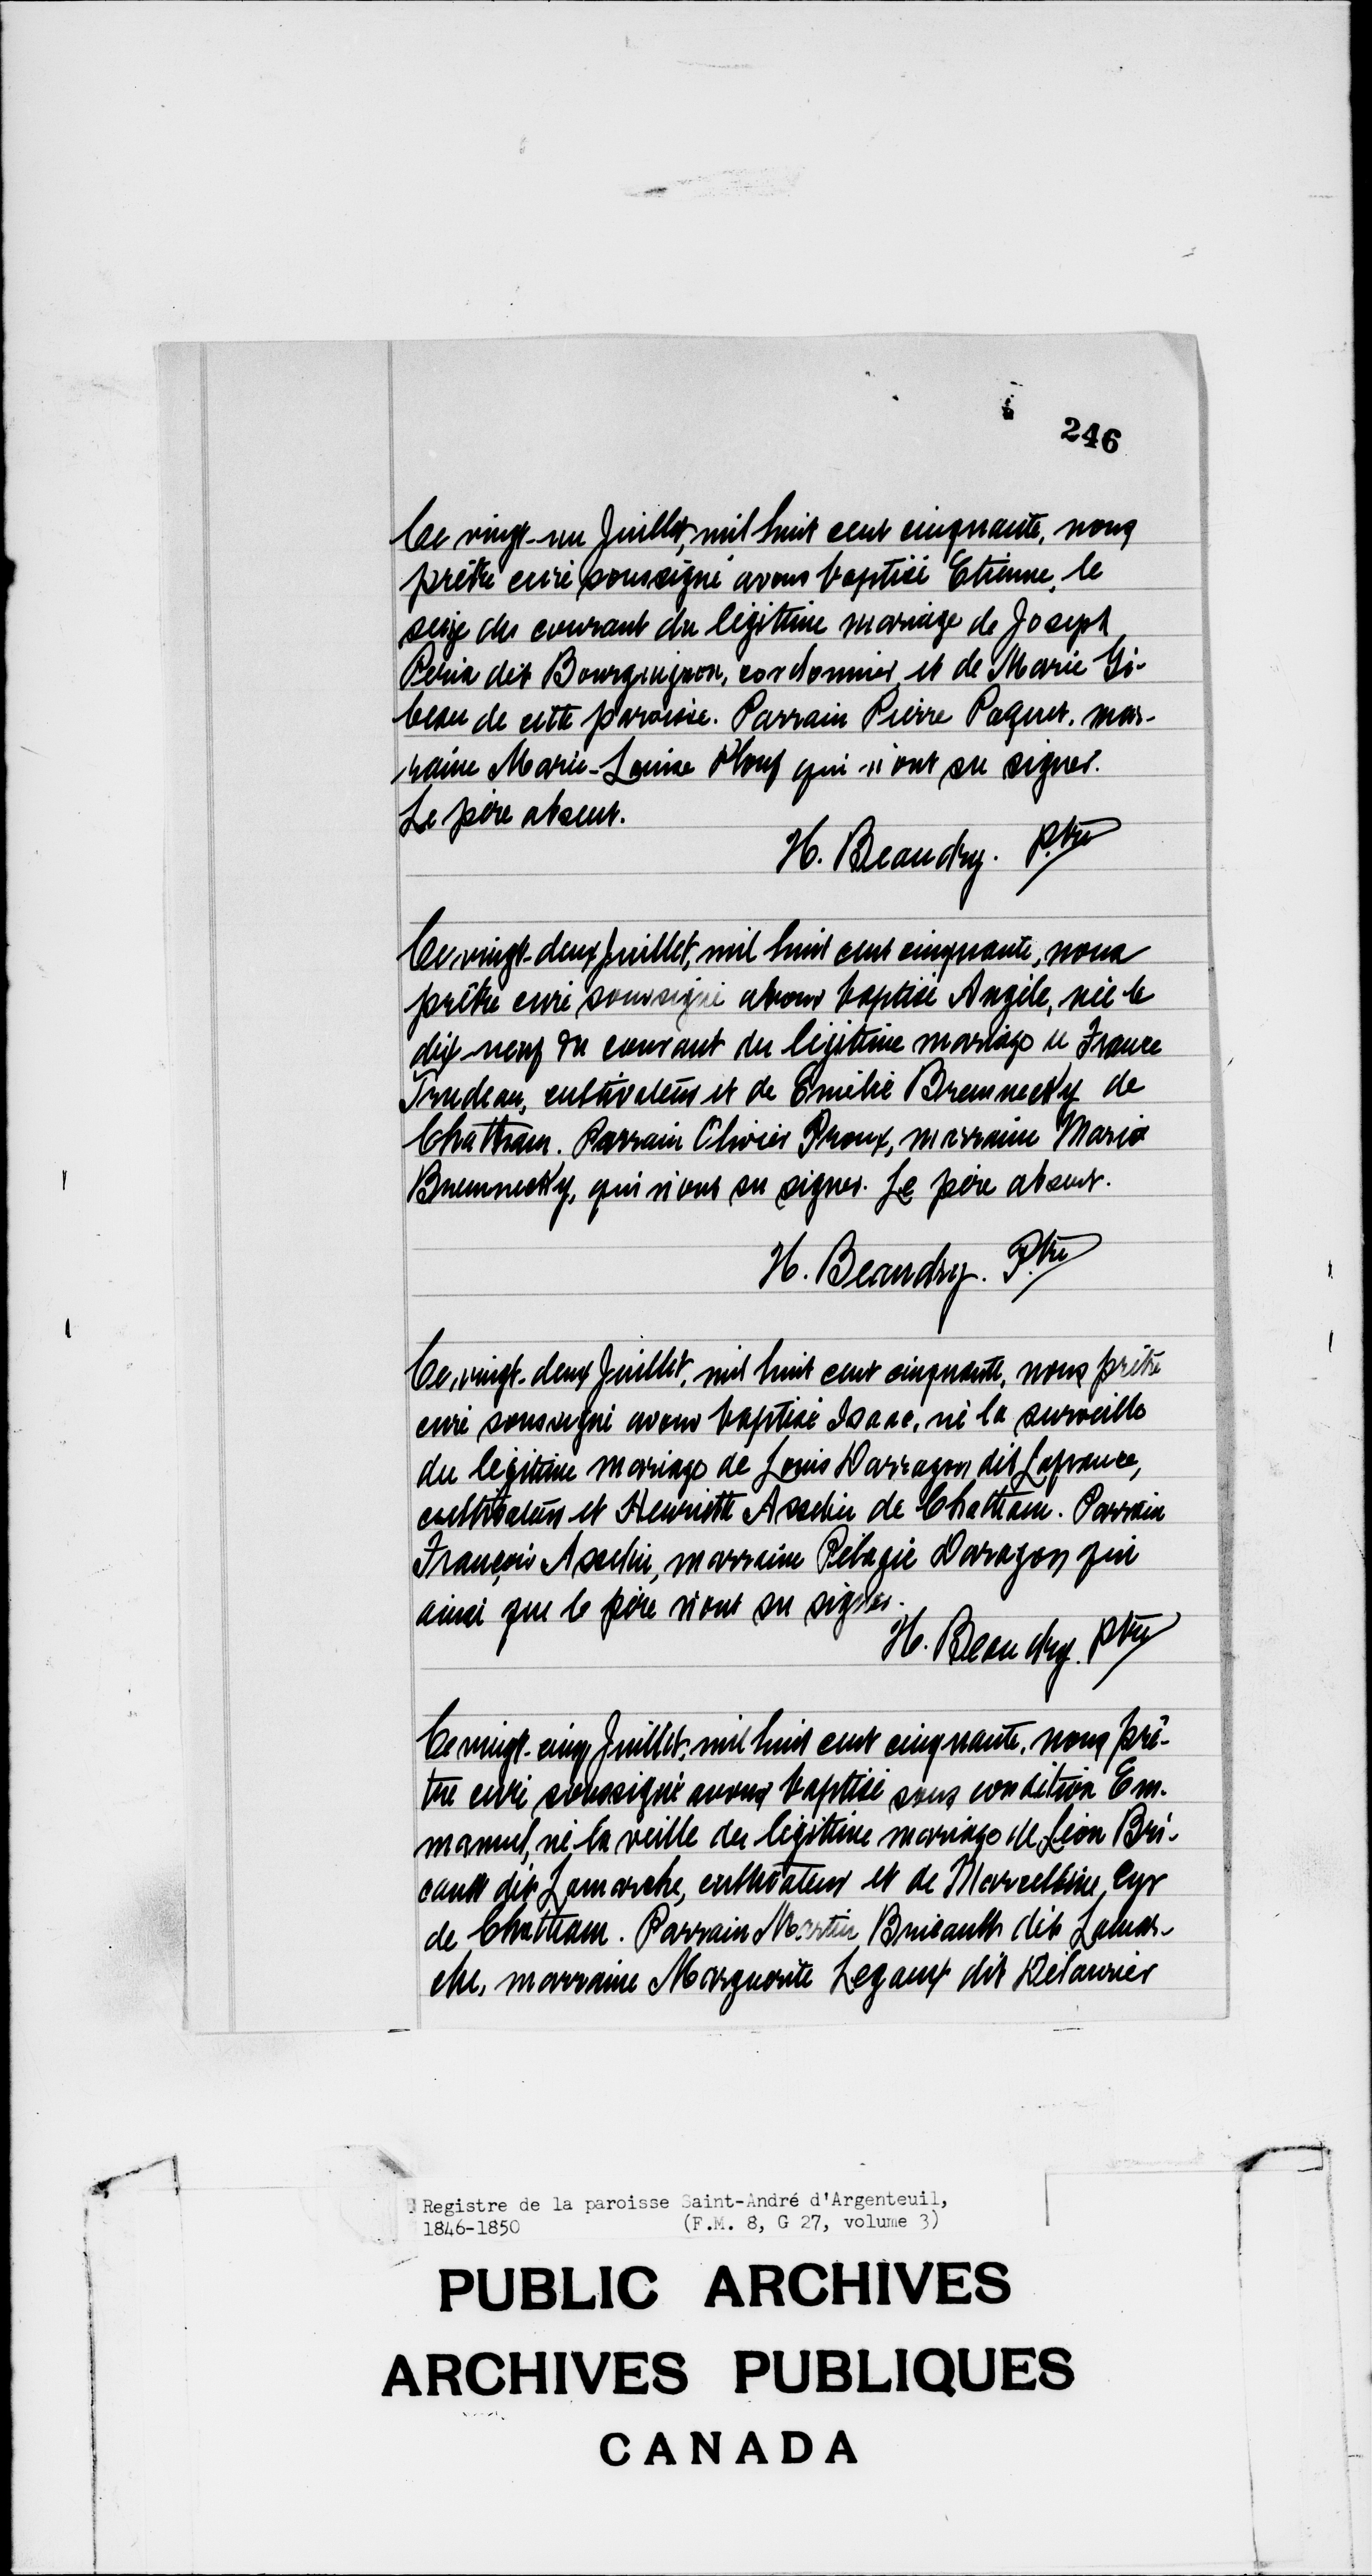 246
Ce vingt-un Juillet, mil huit cent cinquante, nous
prêtre curé soussigné avons baptisé Etienne, le
seize du courant du légitime mariage de Joseph
dit Bourguignon, cordonnier et de Marie Gi-
beau de cette paroisse. Parrain Pierre Paquet, mar-
raine Marie-Louise Plouf qui n'ont su signer.
Le père absent.
H. Beaudry. Ptre
Ce vingt-deux Juillet, mil huit cent cinquante, nous
prêtre curé soussigné avons baptisé Angèle, née le
dix-neuf du courant du légitime mariage de France
Trudeau, cultivateur et de Emélie Bremnecky de
Chatham. Parrain Olivier Proux, marraine Maria
Bremnecky, qui n'ont su signer. Le père absent.
H. Beaudry. Ptre
Ce vingt-deux Juillet, mil huit cent cinquante, nous prêtre
curé soussigné avons baptisé Isaac, né la surveille
du légitime mariage de Louis Darragon dit Lafrance,
cultivateur et Henriette Asselin de Chatham. Parrain
François Asselin, marraine Pélagie Daragon qui
ainsi que le père n'ont su signer.
H. Beaudry. Ptre
Ce vingt-cinq Juillet, mil huit cent cinquante, nous prê-
tre curé soussigné avons baptisé sous condition Em-
manuel, né la veille du légitime mariage de Léon Bri-
cault dit Lamarche, cultivateur et de Marcelline Cyr
de Chatham. Parrain Martin Bricault dit Lamar-
che, marraine Marguerite Legaux dit Délaurier
Registre de la paroisse Saint-André d'Argenteuil,
1846-1850 (F.M. 8, G 27, volume 3)
PUBLIC ARCHIVES
ARCHIVES PUBLIQUES
CANADA